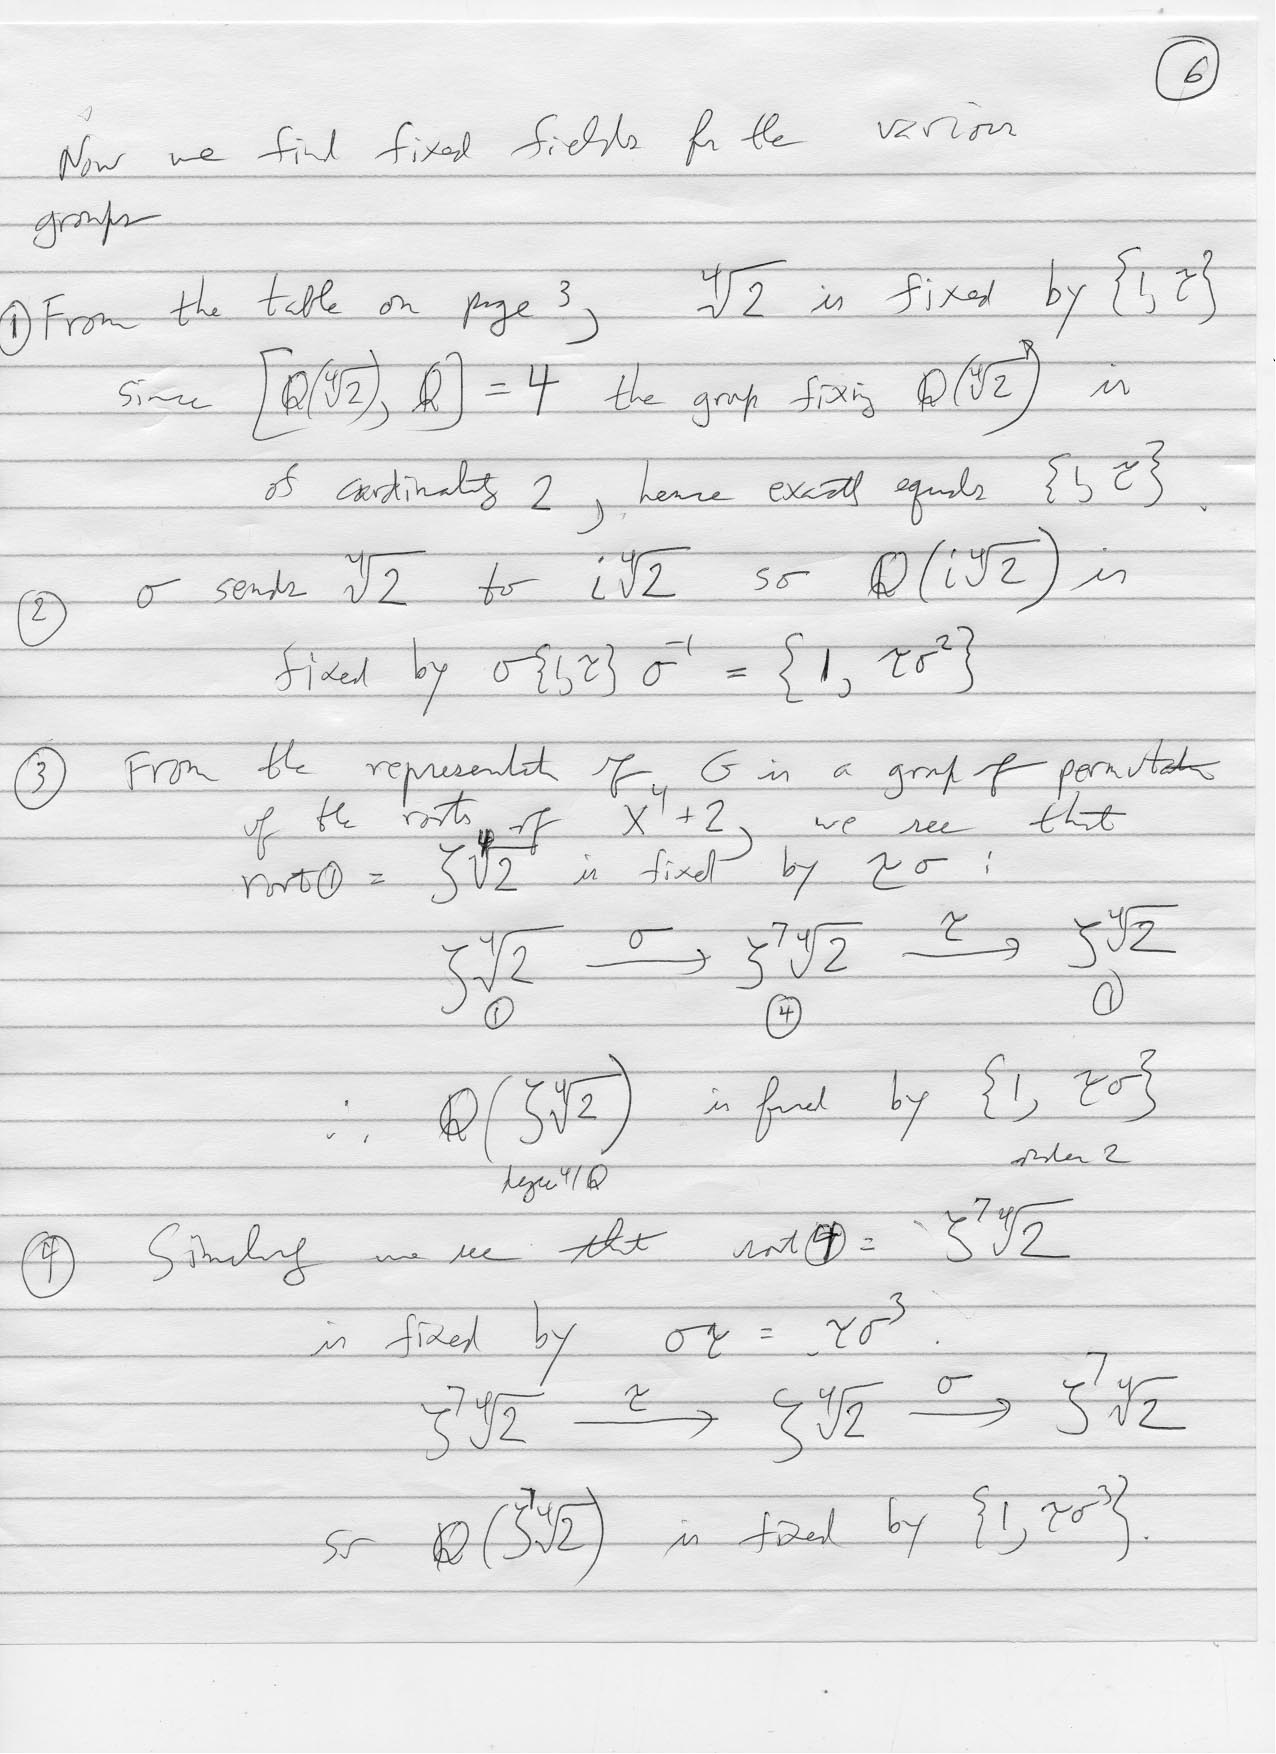 6
Now we find fixed fields for the various
groups
① From the table on page 3, ∜2 is fixed by {1, τ}
since [Q(∜2), Q] = 4 the group fixing Q(∜2) is
of cardinality 2, hence exactly equals {1, τ}.
② σ sends ∜2 to i∜2 so Q(i∜2) is
fixed by σ{1,τ}σ⁻¹ = {1, τσ²}
③ From the representat of G is a group of permutation
of the roots of X⁴+2, we see that
root① = ζ∜2 is fixed by τσ :
ζ∜2 —σ→ ζ⁷∜2 —τ→ ζ∜2
① ④ ①
∴ Q(ζ∜2) is fixed by {1, τσ}
degree 4/Q order 2
④ Similarly we see that root④ = ζ⁷∜2
is fixed by στ = τσ³.
ζ⁷∜2 —τ→ ζ∜2 —σ→ ζ⁷∜2
so Q(ζ⁷∜2) is fixed by {1, τσ³}.